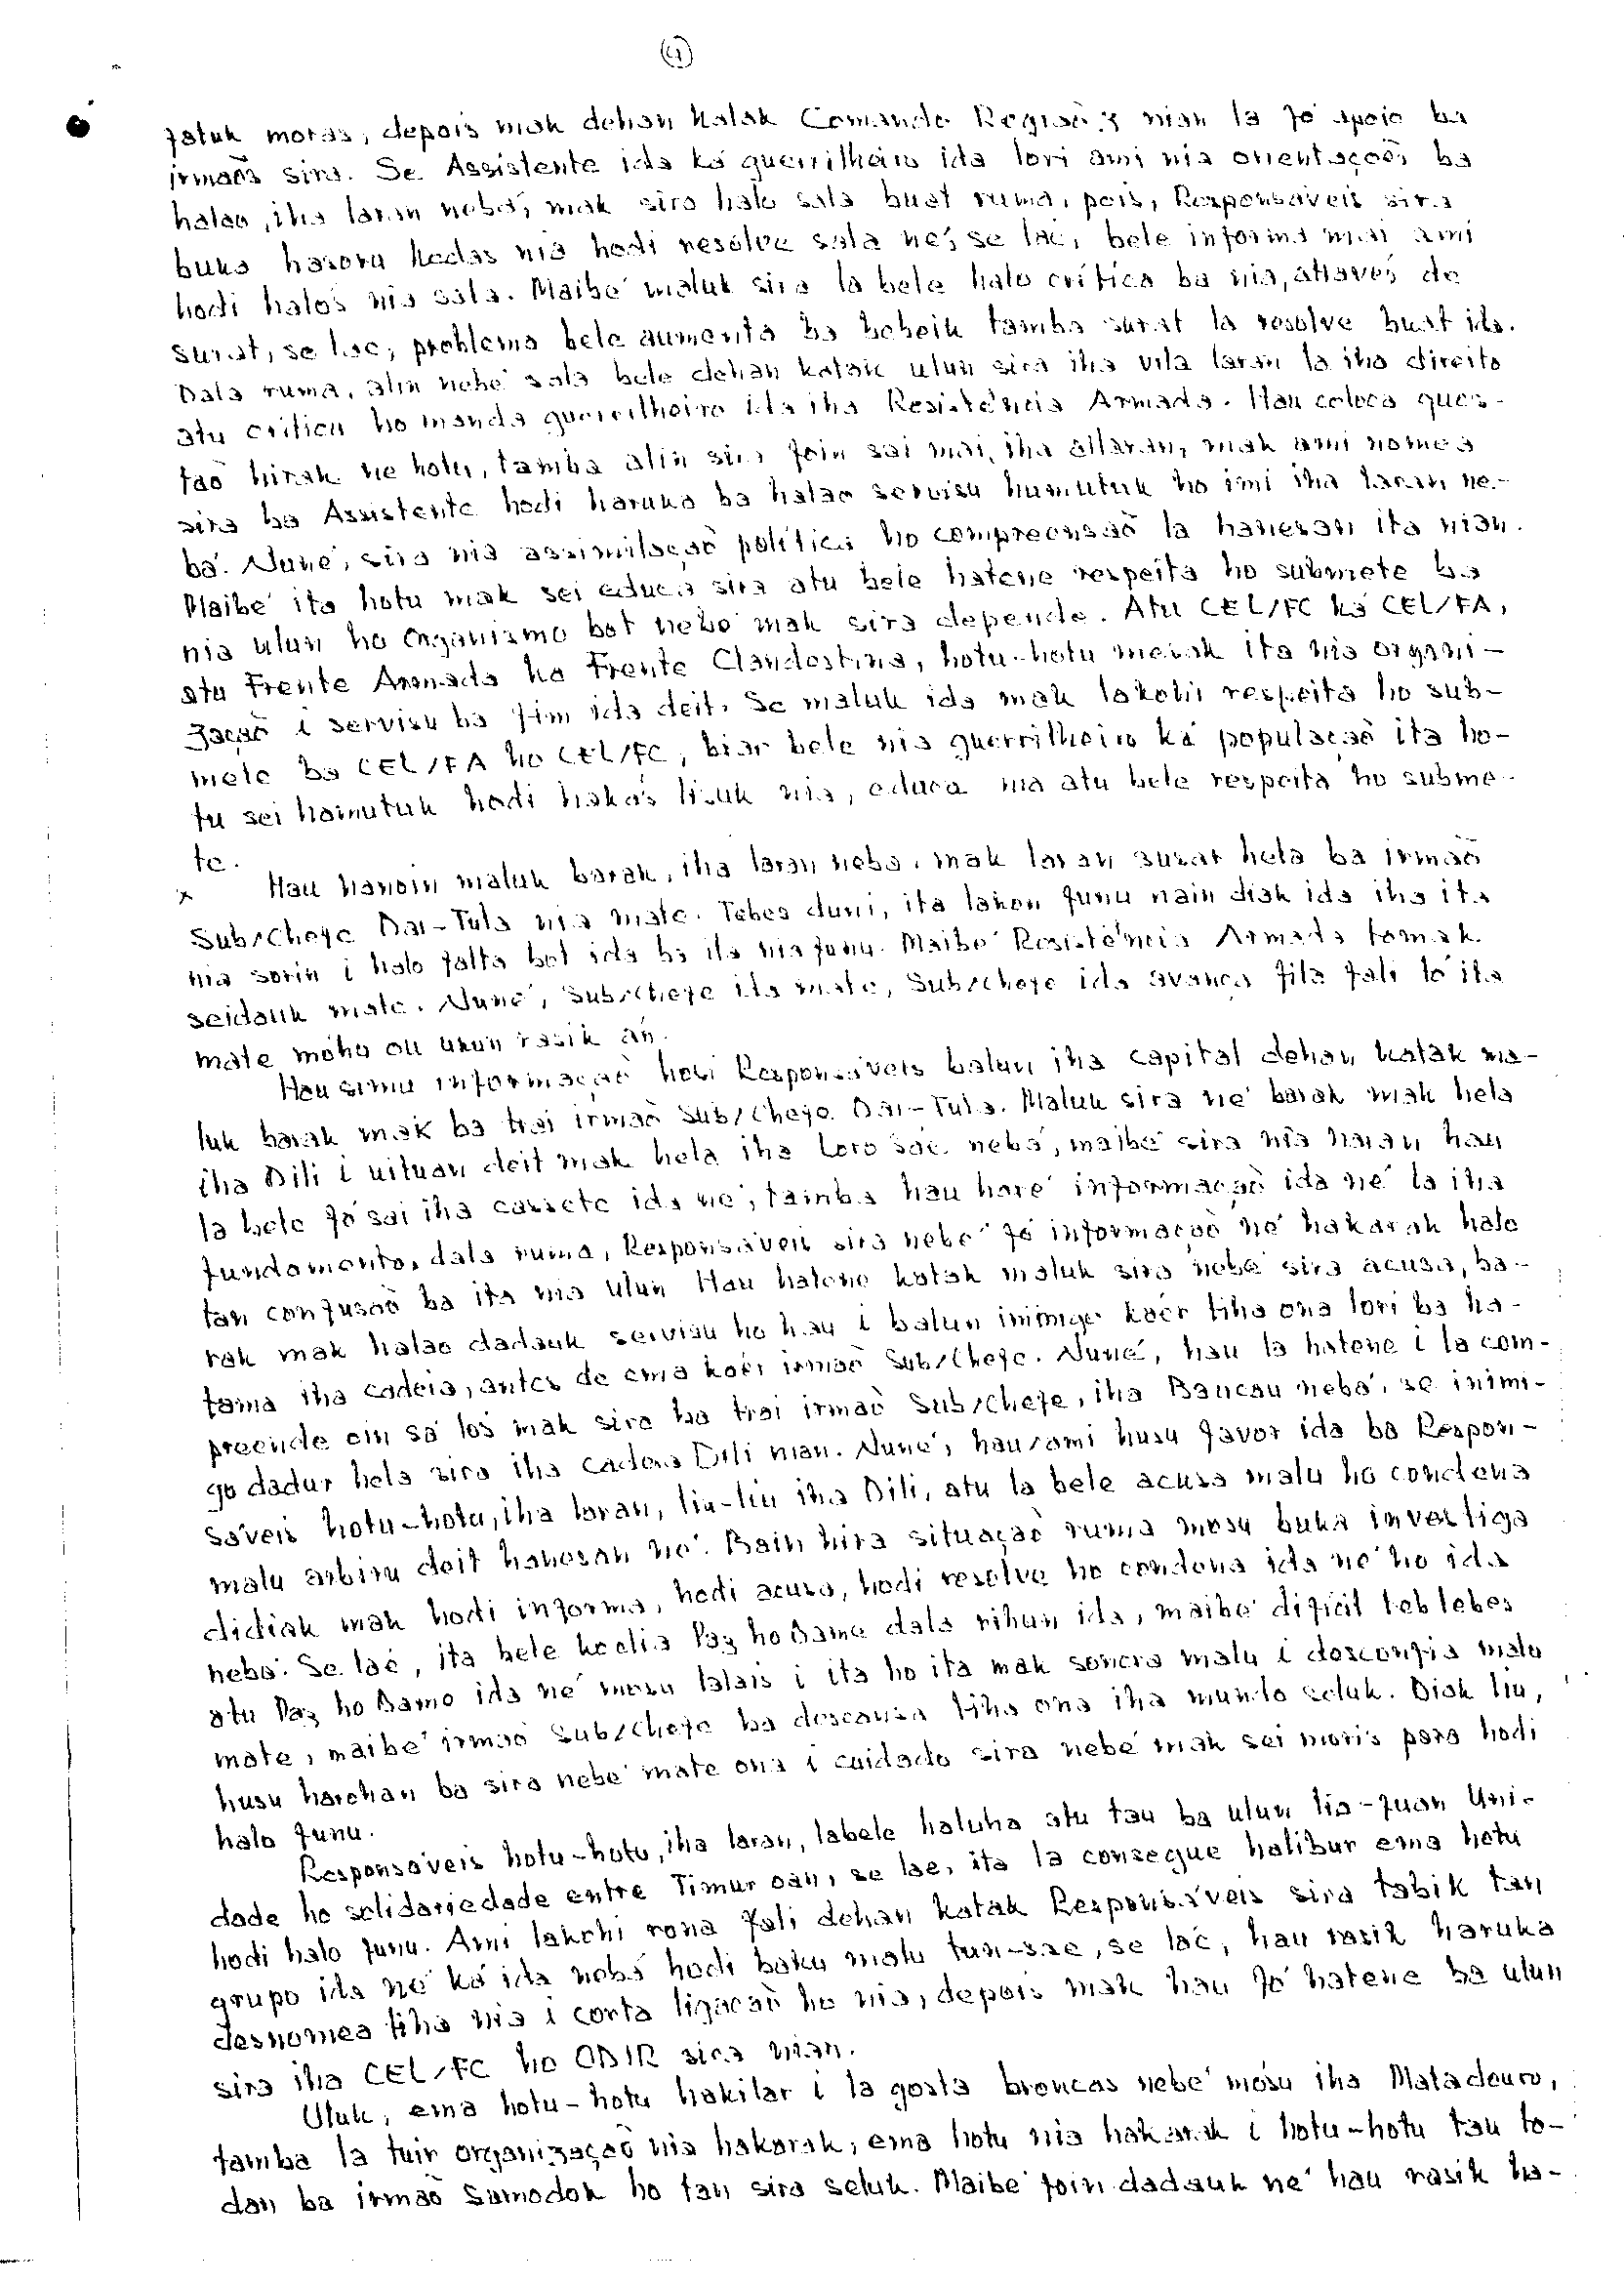 (4)
fatuk moras, depois mak dehan katak Comando Região 3 nian la fó apoio ba
irmaõs sira. Se Assistente ida ká guerrilheiro ida lori ami nia orientações ba
halao, iha laran nebá, mak sira halo sala buat ruma, pois, Responsáveis sira
buka hasoru kedas nia hodi resolve sala né, se laé, bele informa mai ami
hodi halós nia sala. Maibé maluk sira la bele halo crítica ba nia, através de
surat, se laé, problema bele aumenta ba beheik tamba surat la resolve buat ida.
Dala ruma, alin nebé sala bele dehan katak ulun sira iha vila laran la iha direito
atu critica ho manda guerrilheiro ida iha Resistência Armada. Hau coloca ques-
taõ hirak ne hotu, tamba alin sira foin sai mai, iha ailaran, mak ami nomea
sira ba Assistente hodi haruka ba halao servisu hamutuk ho imi iha laran ne-
bá. Nuné, sira nia assimilaçaõ política ho compreensaõ la hanesan ita nian.
Maibé ita hotu mak sei educa sira atu bele hatene respeita ho submete ba
nia ulun ho Organismo bot nebé mak sira depende. Atu CEL/FC ká CEL/FA,
atu Frente Armada ká Frente Clandestina, hotu-hotu mesak ita nia organi-
zaçaõ i servisu ba fim ida deit. Se maluk ida mak lakohi respeita ho sub-
mete ba CEL/FA ho CEL/FC, biar bele nia guerrilheiro ká populaçaõ ita ho-
tu sei hamutuk hodi hakás lisuk nia, educa nia atu bele respeita ho subme-
te.
x Hau hanoin maluk barak, iha laran nebá, mak laran susar hela ba irmaõ
Sub/Chefe Dai-Tula nia mate. Tebes duni, ita lakon funu nain diak ida iha ita
nia sorin i halo falta bot ida ba ita nia funu. Maibé Resistência Armada tomak
seidauk mate. Nuné, Sub/Chefe ida mate, Sub/Chefe ida avança fila fali tó ita
mate mohu ou ukun rasik an.
Hau simu informaçaõ hosi Responsáveis balun iha capital dehan katak ma-
luk barak mak ba trai irmaõ Sub/Chefe Dai-Tula. Maluk sira né barak mak hela
iha Dili i uituan deit mak hela iha Loro Sae nebá, maibé sira nia naran hau
la bele fó sai iha cassete ida né, tamba hau haré informaçaõ ida né la iha
fundamento, dala ruma, Responsáveis sira nebé fó informaçaõ né hakarak halo
tan confusaõ ba ita nia ulun Hau hatene katak maluk sira nebé sira acusa, ba-
rak mak halao dadauk servisu ho hau i balun inimigo kaér tiha ona lori ba ha-
tama iha cadeia, antes de ema kaér irmaõ Sub/Chefe. Nuné, hau la hatene i la com-
preende oin sá lós mak sira ba trai irmaõ Sub/Chefe, iha Baucau nebá, se inimi-
go dadur hela sira iha cadeia Dili nian. Nuné, hau/ami husu favor ida ba Respon-
sáveis hotu-hotu, iha laran, liu-liu iha Dili, atu la bele acusa malu ho condena
malu arbiru deit hanesan né. Bain hira situaçaõ ruma mosu buka investiga
didiak mak hodi informa, hodi acusa, hodi resolve ho condena ida né ho ida
nebá. Se laé, ita bele koalia Paz ho Dame dala rihun ida, maibé difícil tebtebes
atu Paz ho Dame ida né mosu lalais i ita ho ita mak soncra malu i desconfia malu
mate, maibé irmaõ Sub/Chefe ba descansa tiha ona iha mundo seluk. Diak liu,
husu harohan ba sira nebé mate ona i cuidado sira nebé mak sei moris para hodi
halo funu.
Responsáveis hotu-hotu, iha laran, labele haluha atu tau ba ulun lia-fuan Uni-
dade ho solidariedade entre Timur oan, se lae, ita la consegue halibur ema hotu
hodi halo funu. Ami lakohi rona fali dehan katak Responsáveis sira tabik tan
grupo ida né ká ida nebá hodi baku malu tun-sae, se laé, hau rasik haruka
desnomea tiha nia i corta ligaçaõ ho nia, depois mak hau fó hatene ba ulun
sira iha CEL/FC ho ODIR sira nian.
Uluk, ema hotu-hotu hakilar i la gosta broncas nebé mósu iha Matadouro,
tamba la tuir organizaçaõ nia hakarak, ema hotu nia hakarak i hotu-hotu tau to-
dan ba irmaõ Samodok ho tan sira seluk. Maibé foin dadauk né hau rasik ha-